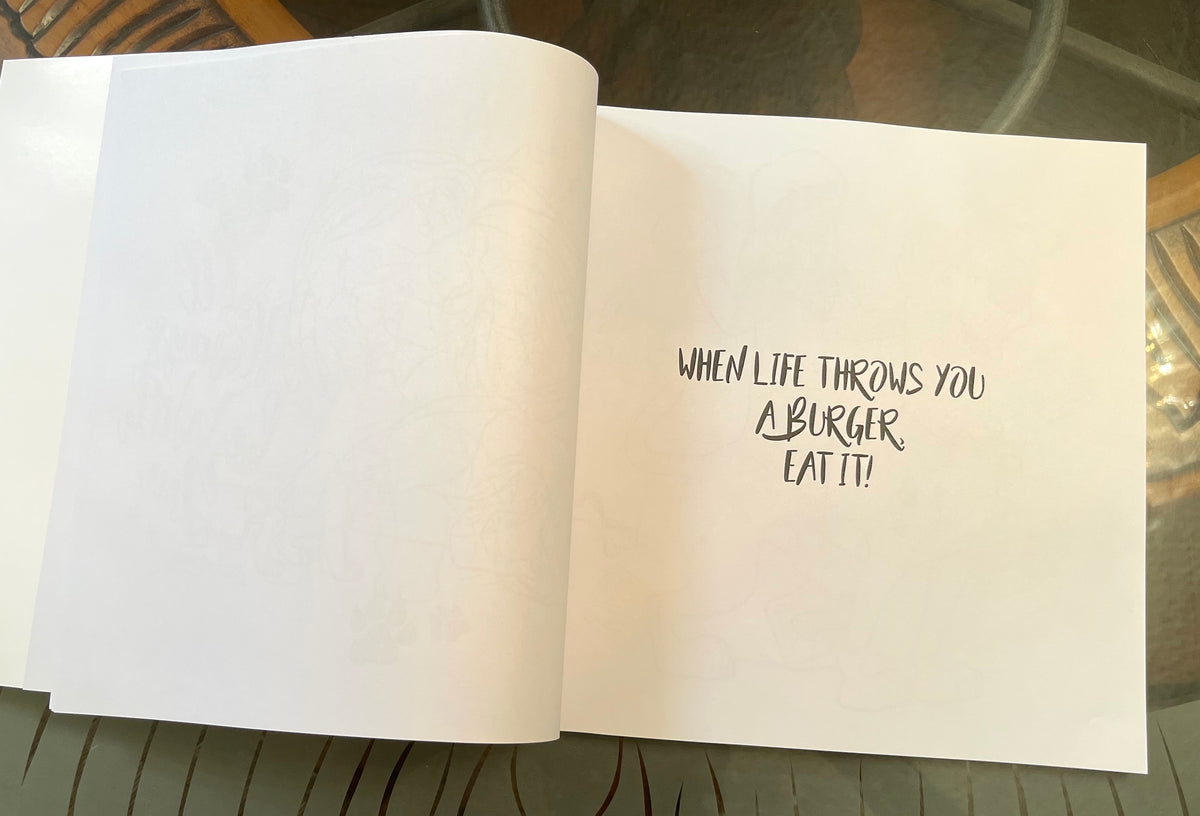 WHEN LIFE THROWS YOU
A BURGER,
EAT IT!